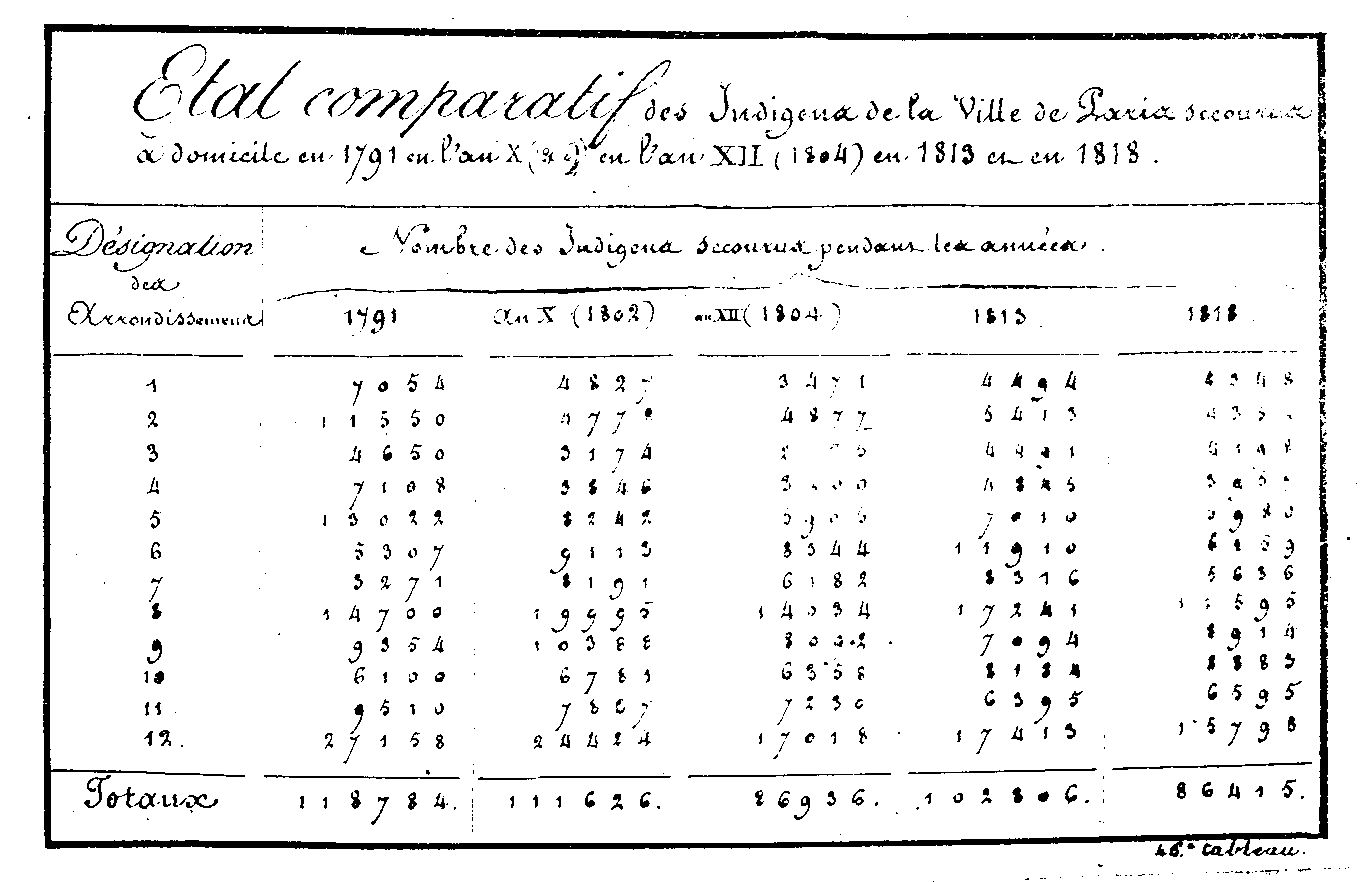 Etat comparatif des Indigens de la Ville de Paris secourus
à domicile en 1791 en l'an X en l'an XII (1804) en 1813 et en 1818.
Désignation Nombre des Indigens secourus pendant les années.
des
Arrondissemens 1791 an X (1802) an XII (1804) 1813. 1818.
1 7054 4827 3471 4494 4348
2 11550 4778 4877 5413
3 4650 3174 4491 4198
4 7108 3846 4845
5 13022 8242 5905 7010 5980
6 5307 9113 8344 11910
7 3271 8191 6182 8316 5636
8 14700 19995 14034 17241 11595
9 9354 10388 8002 7094 8914
10 6100 6781 6358 8184 8883
11 9510 7867 7230 6395 6595
12. 27158 24424 17018 17413 15798
Totaux 118784. 111626. 86936. 102806. 86415.
46.e tableau.